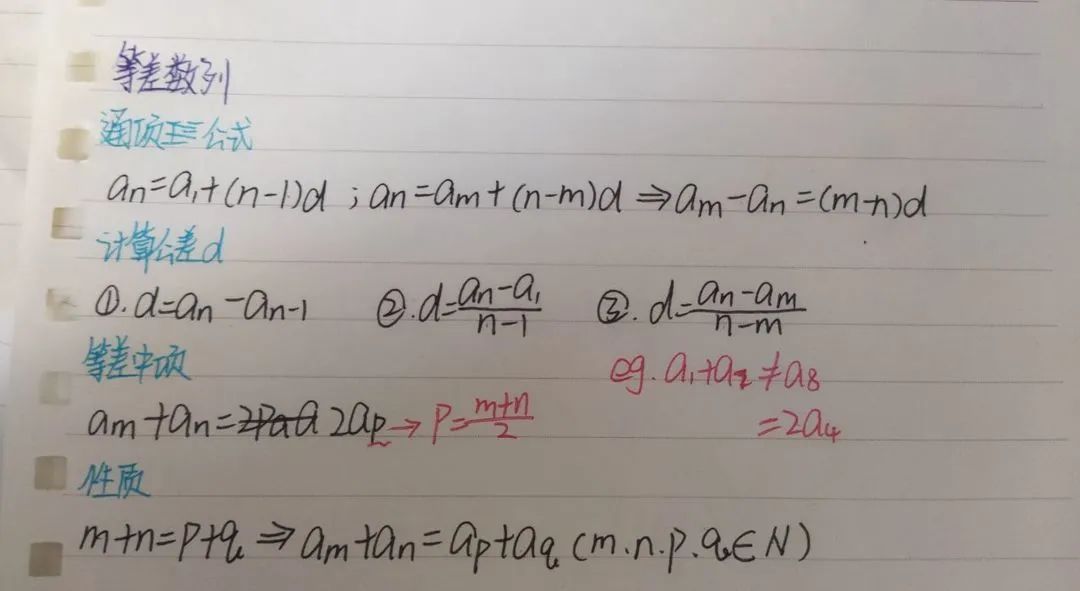 等差数列
通项公式
aₙ=a₁+(n-1)d ; aₙ=aₘ+(n-m)d ⇒ aₘ-aₙ=(m-n)d
计算公差d
①. d=aₙ-aₙ₋₁ ②. d=\frac{aₙ-a₁}{n-1} ③. d=\frac{aₙ-aₘ}{n-m}
等差中项 eg. a₁+a₇≠a₈
aₘ+aₙ=2aₚ → p=\frac{m+n}{2} =2a₄
性质
m+n=p+q ⇒ aₘ+aₙ=aₚ+a_q (m.n.p.q∈N)